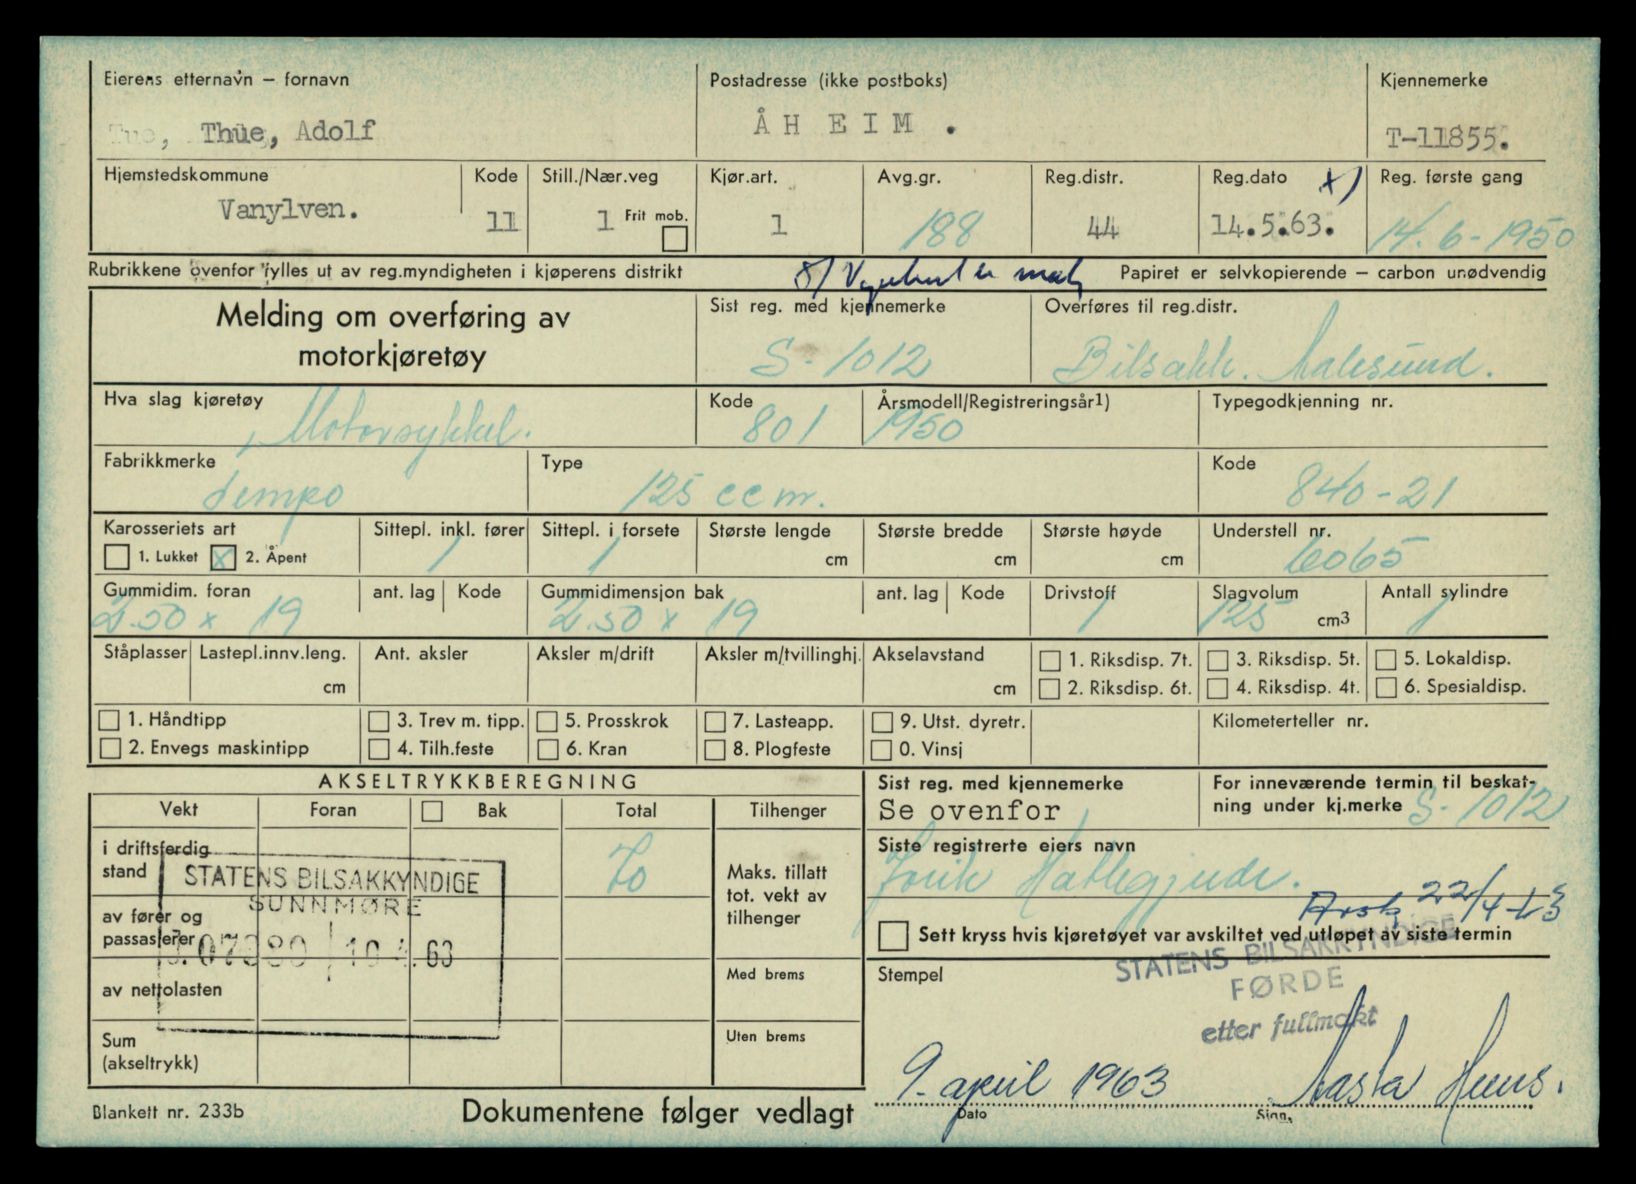 Eierens etternavn – fornavn
Postadresse (ikke postboks)
Kjennemerke
Thüe, Adolf
ÅHEIM.
T-11855.
Hjemstedskommune
Kode
Still./Nær.veg
Kjør.art.
Avg.gr.
Reg.distr.
Reg.dato
Reg. første gang
Vanylven.
11
1
Frit mob.
1
188
44
14.5.63.
14.6-1950
Rubrikkene ovenfor fylles ut av reg.myndigheten i kjøperens distrikt
Papiret er selvkopierende – carbon unødvendig
Melding om overføring av
motorkjøretøy
Sist reg. med kjennemerke
Overføres til reg.distr.
S-1012
Bilsakk. Aalesund.
Hva slag kjøretøy
Kode
Årsmodell/Registreringsår1)
Typegodkjenning nr.
Motorsykkel.
801
1950
Fabrikkmerke
Type
Kode
Tempo
125 ccm.
840-21
Karosseriets art
Sittepl. inkl. fører
Sittepl. i forsete
Største lengde
Største bredde
Største høyde
Understell nr.
1. Lukket
X 2. Åpent
1
1
cm
cm
cm
6065
Gummidim. foran
ant. lag
Kode
Gummidimensjon bak
ant. lag
Kode
Drivstoff
Slagvolum
Antall sylindre
2.50 x 19
2.50 x 19
1
125 cm3
1
Ståplasser
Lastepl.innv.leng.
Ant. aksler
Aksler m/drift
Aksler m/tvillinghj.
Akselavstand
1. Riksdisp. 7t.
3. Riksdisp. 5t.
5. Lokaldisp.
cm
cm
2. Riksdisp. 6t.
4. Riksdisp. 4t.
6. Spesialdisp.
1. Håndtipp
3. Trev m. tipp.
5. Prosskrok
7. Lasteapp.
9. Utst. dyretr.
Kilometerteller nr.
2. Envegs maskintipp
4. Tilh.feste
6. Kran
8. Plogfeste
0. Vinsj
AKSELTRYKKBEREGNING
Sist reg. med kjennemerke
For inneværende termin til beskat-
ning under kj.merke S-1012
Vekt
Foran
Bak
Total
Tilhenger
Se ovenfor
i driftsferdig
stand
70
Maks. tillatt
tot. vekt av
tilhenger
Siste registrerte eiers navn
STATENS BILSAKKYNDIGE
SUNNMØRE
av fører og
passasjerer
22/4-63
Sett kryss hvis kjøretøyet var avskiltet ved utløpet av siste termin
av nettolasten
Med brems
Stempel
STATENS BILSAKKYNDIGE
FØRDE
etter fullmakt
Sum
(akseltrykk)
Uten brems
9. april 1963
Dato
Sign.
Blankett nr. 233b
Dokumentene følger vedlagt